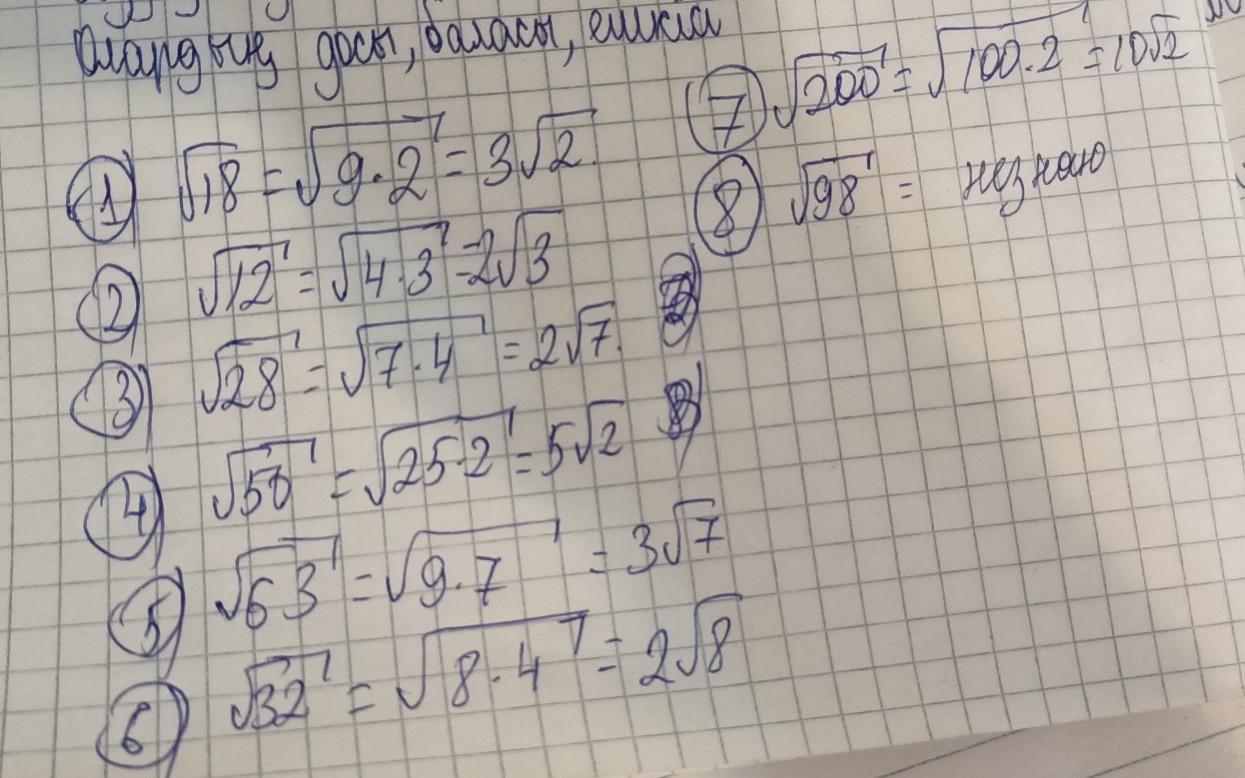 олардың досы, баласы, ешкім
1 √18 = √9·2 = 3√2.
2 √12 = √4·3 = 2√3
3 √28 = √7·4 = 2√7.
4 √50 = √25·2 = 5√2
5 √63 = √9·7 = 3√7
6 √32 = √8·4 = 2√8
7 √200 = √100·2 = 10√2
8 √98 = незнаю